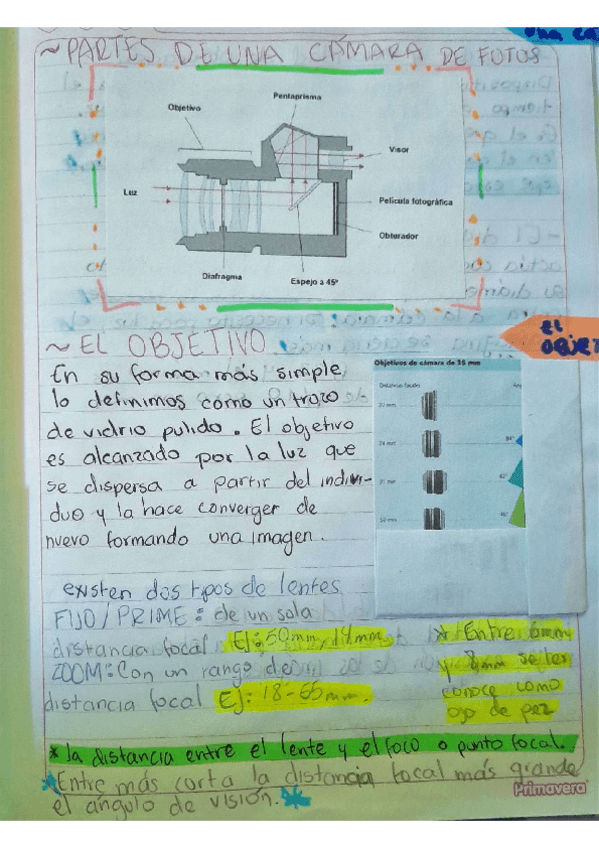 ~PARTES DE UNA CÁMARA DE FOTOS
Pentaprisma
Objetivo
Visor
Luz
Película fotográfica
Obturador
Diafragma
Espejo a 45º
~ EL OBJETIVO
EL
En su forma más simple
lo definimos como un trozo
de vidrio pulido. El objetivo
es alcanzado por la luz que
se dispersa a partir del indivi-
duo y la hace converger de
nuevo formando una imagen.
Objetivos de cámara de 35 mm
existen dos tipos de lentes
FIJO/PRIME: de un sola
distancia focal Ej: 50mm, 14mm
ZOOM: Con un rango de
distancia focal Ej: 18-55mm.
* Entre 6mm
y 8mm se le
conoce como
ojo de pez
* la distancia entre el lente y el foco o punto focal.
*Entre más corta la distancia focal más grande
el ángulo de visión.*
Primavera